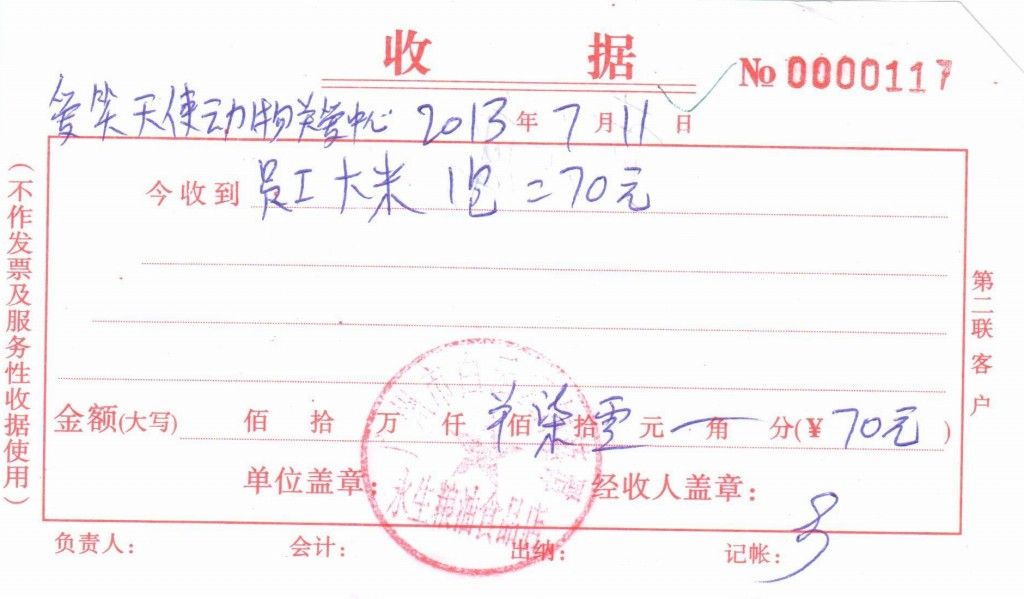 收 据
№ 0000117
爱笑天使动物关爱中心 2013年7月11日
今收到 员工大米 1包 = 70元
金额(大写) 佰 拾 万 仟 佰 柒 拾 零 元 一 角 分(¥ 70元 )
单位盖章： 经收人盖章：
永生粮油食品店
负责人： 会计： 出纳： 记帐：
（不作发票及服务性收据使用）
第二联 客户